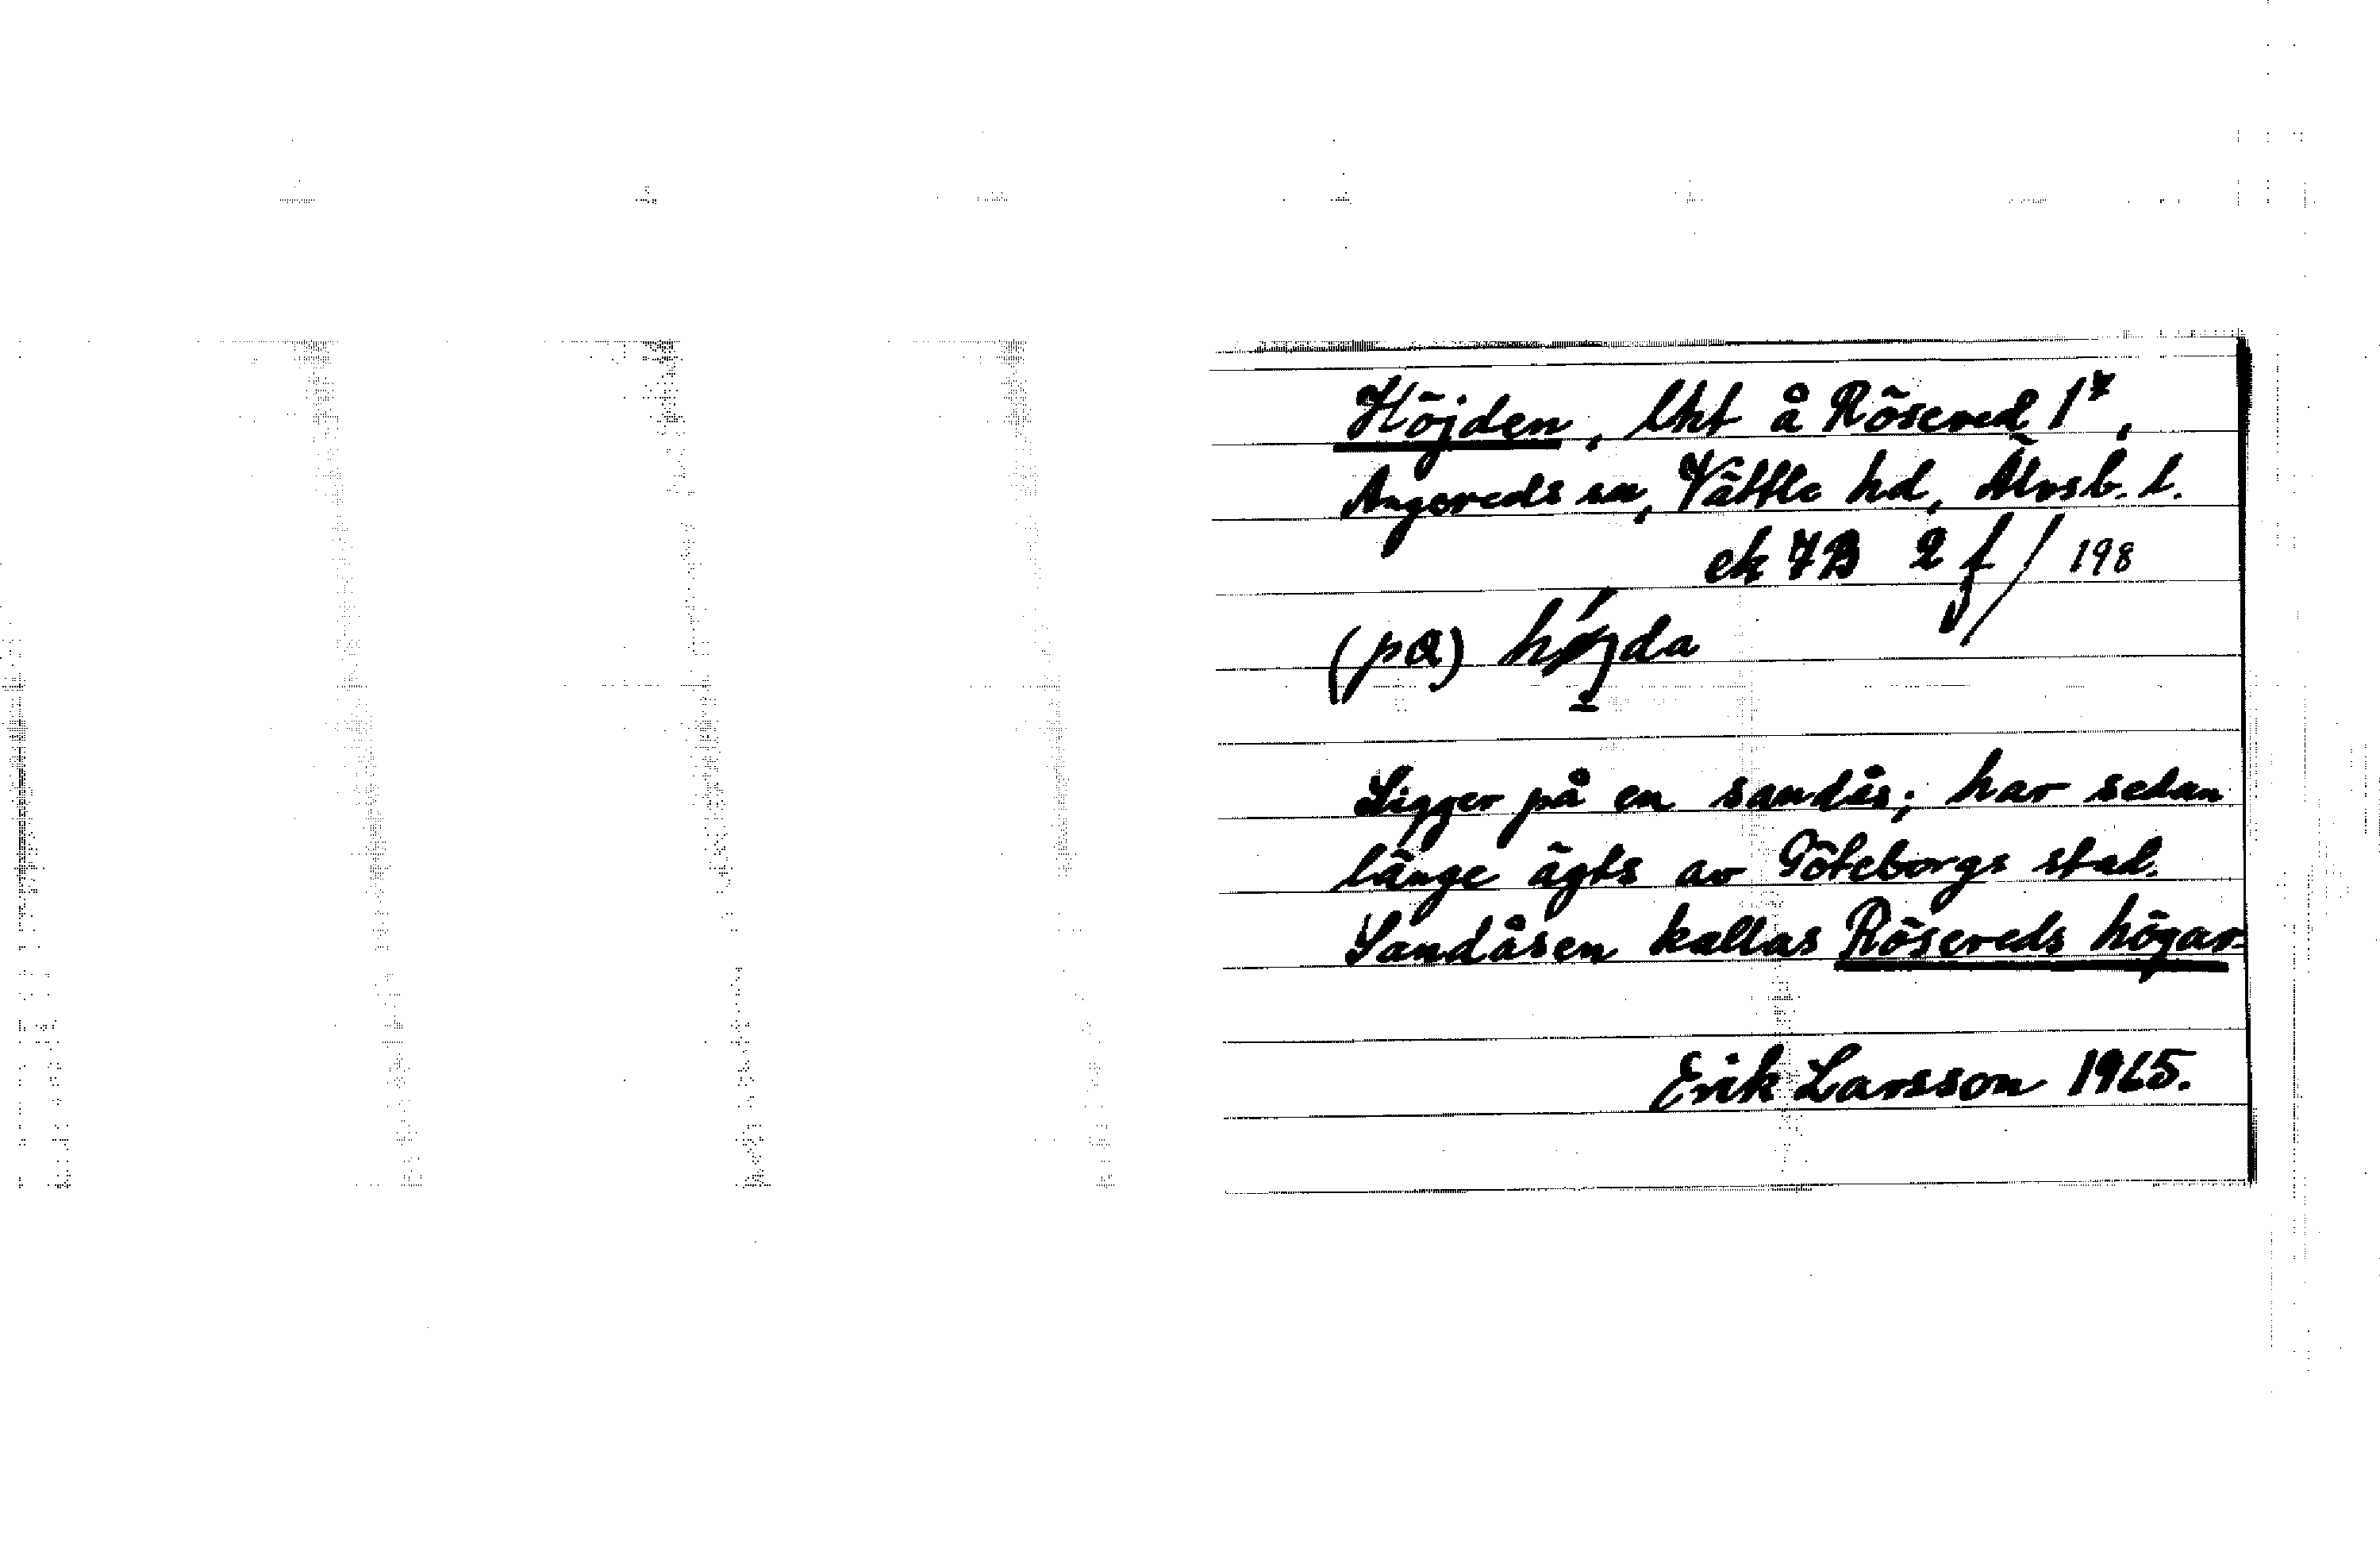 Höjden, lht å Rösered 1⁷,
Angereds sn, Vättle hd, Älvsb. l.
ek 7B 2 f / 198
(pa)
Ligger på en sandås; har sedan
länge ägts av Göteborgs stad.
Sandåsen kallas Rösereds högar
Erik Larsson 1965.